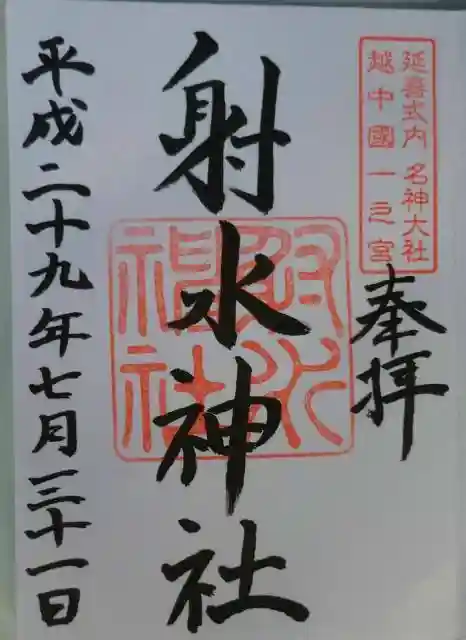 延喜式内 名神大社
越中國一之宮
奉拝
射水神社
射水神社
平成二十九年七月三十一日